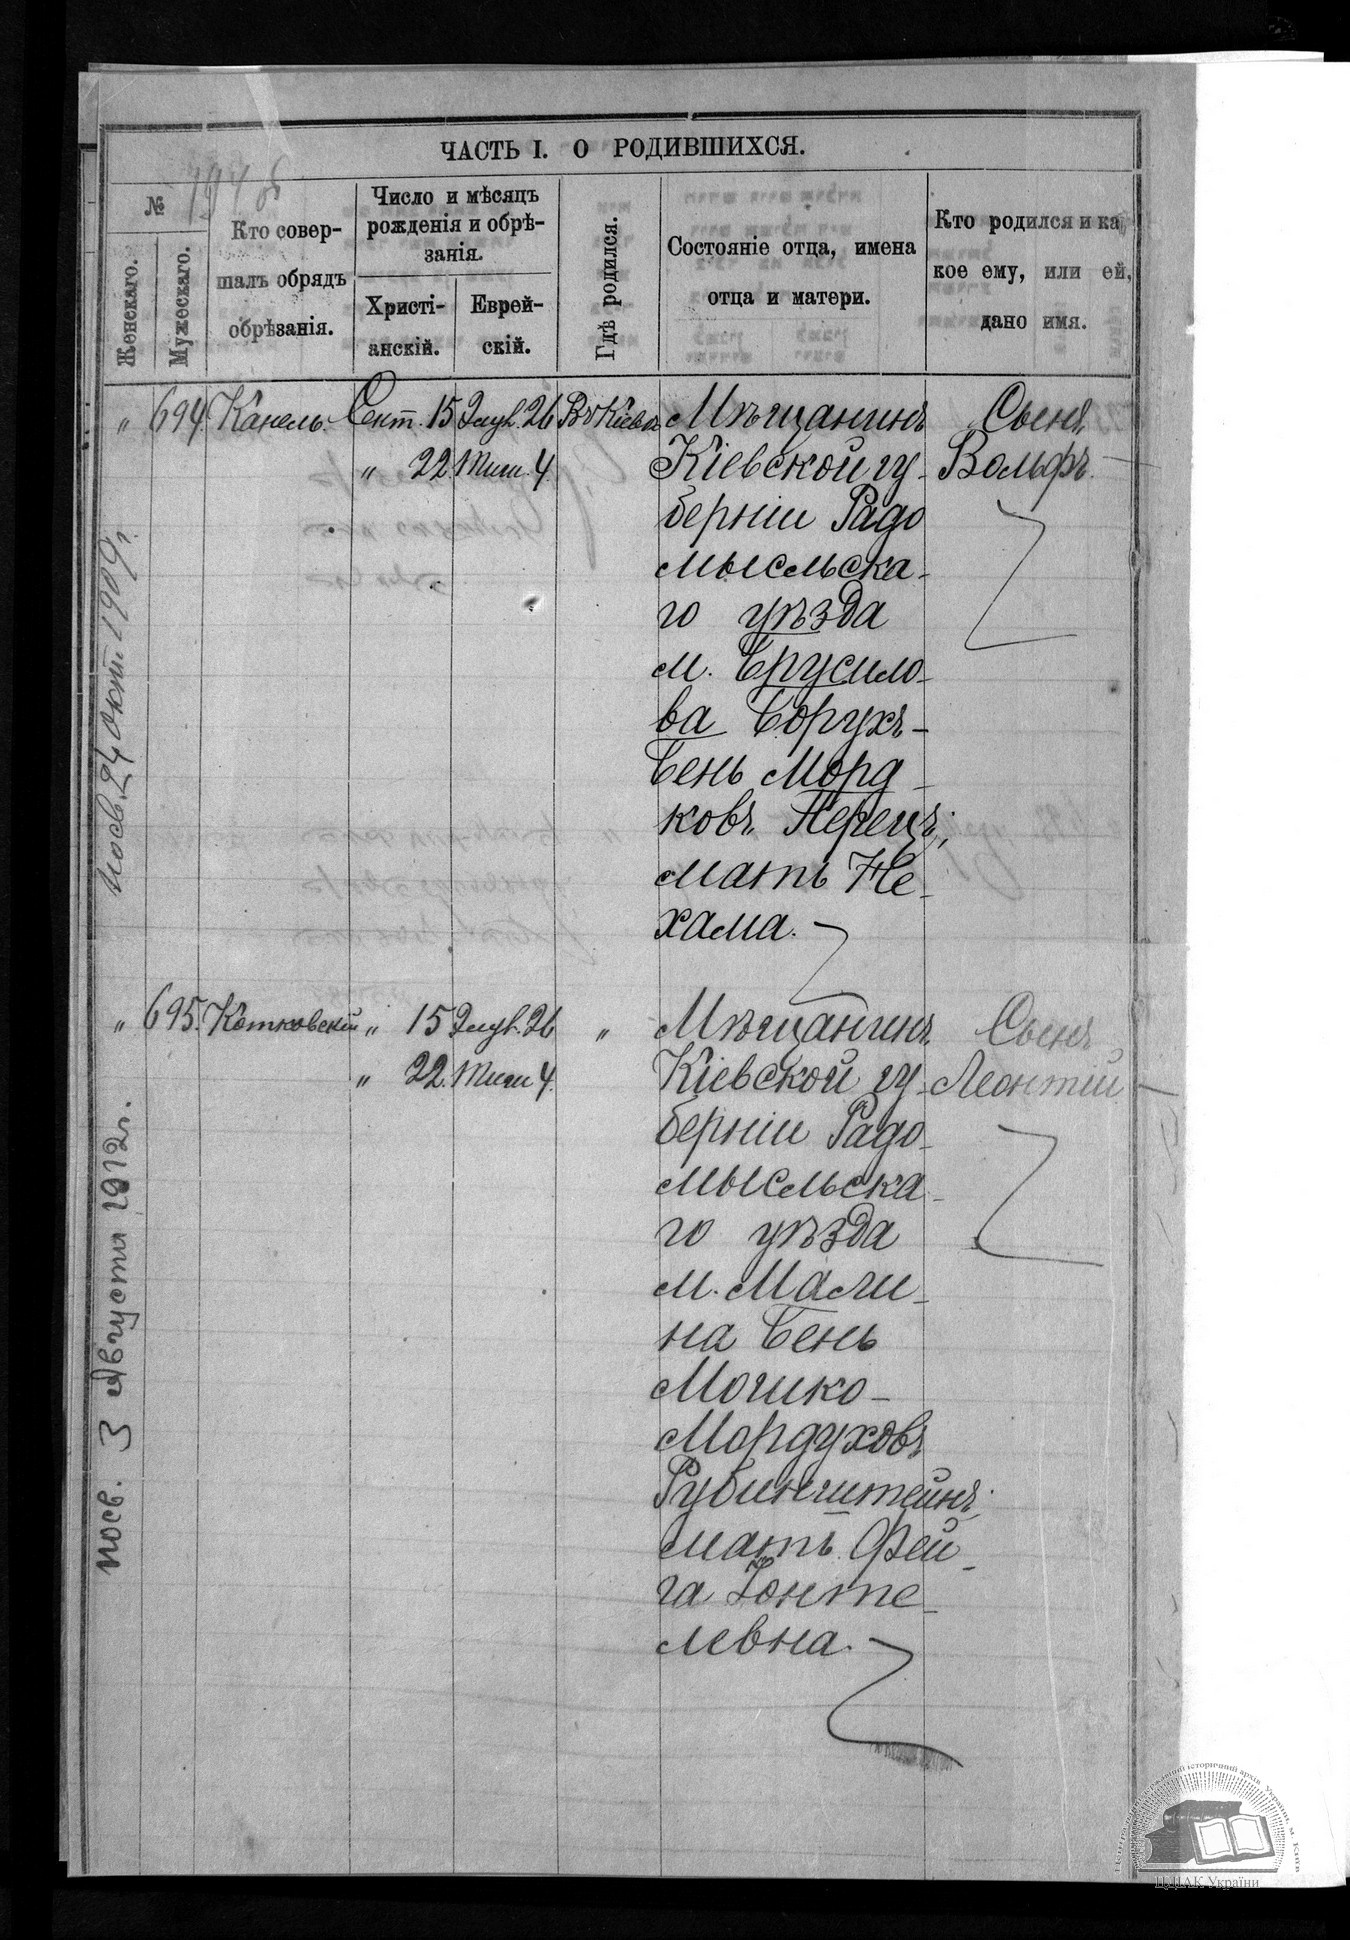 ЧАСТЬ I. О РОДИВШИХСЯ.
№
Женскаго.
Мужескаго.
Кто совер-
шалъ обрядъ
обрѣзанія.
Число и мѣсяцъ
рожденія и обрѣ-
занія.
Христі-
анскій.
Еврей-
скій.
Гдѣ родился.
Состояніе отца, имена
отца и матери.
Кто родился и ка
кое ему, или ей,
дано имя.
„ 694. Канель. Сент. 15 Элул. 26 Въ Кіевѣ
„ 22. Тиш. 4.
Мѣщанинъ
Кіевской гу-
берніи Радо
мысльска-
го уѣзда
м. Брусило-
ва Борухъ-
Бень Морд-
ковъ Перецъ;
мать Не-
хама.
Сынъ
Вольфъ.
„ 695. Котковскій „ 15 Элул. 26 „
„ 22. Тиш. 4.
Мѣщанинъ
Кіевской гу-
берніи Радо-
мысльска-
го уѣзда
м. Мали-
на Бень
Мошко-
Мордуховъ
Рубинштейнъ;
мать Фей-
га Іонте-
левна.
Сынъ
Леонтій
24 Окт. 1909 г.
посв. 3 Августа 1912 г.
ЦДІАК України